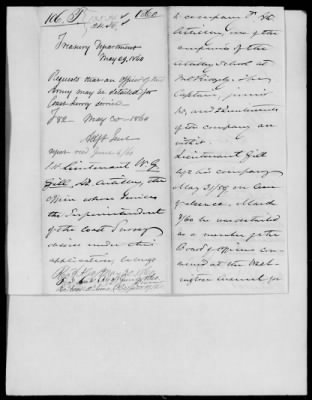 106. T. 1860
Treasury Department
May 29, 1860
Requests that an officer of the
Army may be detailed for
Coast Survey service
T 82 May 30 1860
June 6/60
1st Lieutenant W. G.
Gill 4th Artillery, the
officer whose services
the Superintendent
of the Coast Survey
desires under this
application, belongs
to company
Artillery, one of the
companies of the
Artillery School at
Fort Monroe. The
Captain, junior
1st, and 2d Lieutenants
of the company are
with it.
Lieutenant Gill
left his company
May 31/59 on leave
of absence. March
1/60 he was detailed
as a member of the
Board of officers con-
vened at the Wash-
ington Arsenal for